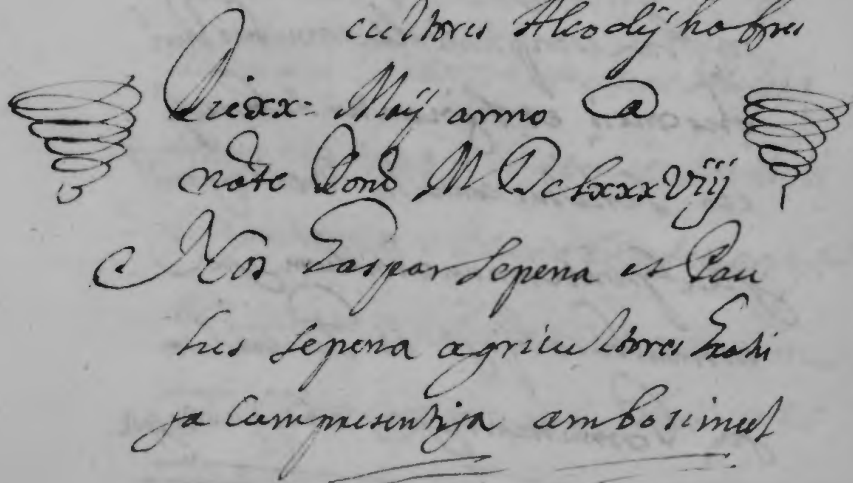 cultores Alcodij habres
Die xx= Maij anno a
nate Dond M Dclxxx Viij
Nos Gaspar Sepena et Pau
lus Sepena agricultores
ja Cum presentija ambo simul